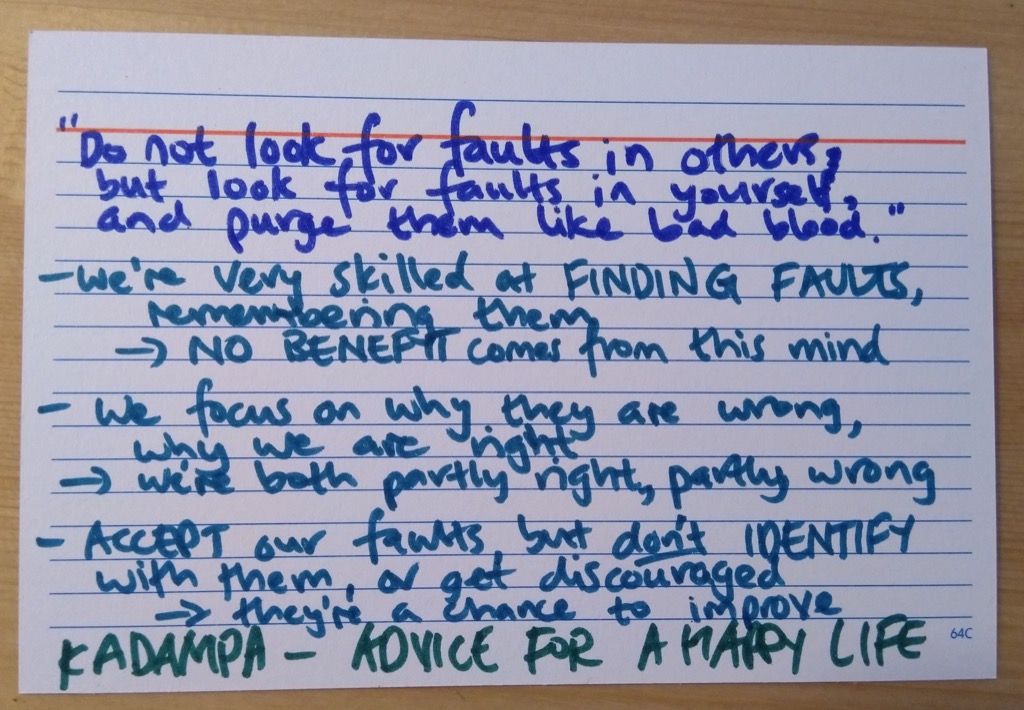 "Do not look for faults in others,
but look for faults in yourself,
and purge them like bad blood."
- we're very skilled at FINDING FAULTS,
remembering them
→ NO BENEFIT comes from this mind
- We focus on why they are wrong,
why we are right
→ we're both partly right, partly wrong
- ACCEPT our faults, but don't IDENTIFY
with them, or get discouraged
→ they're a chance to improve
KADAMPA - ADVICE FOR A HAPPY LIFE
64C